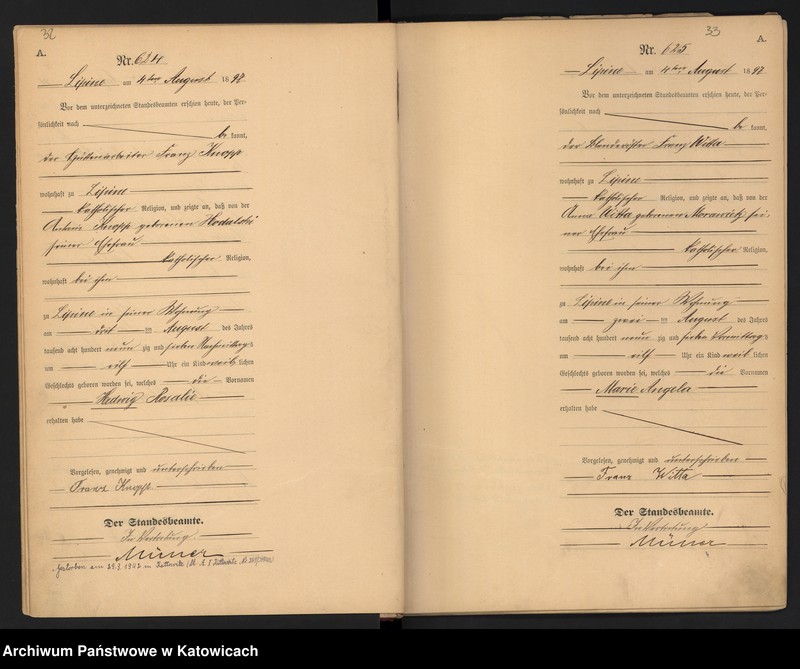 32
A.
Nr. 624
Lipine am 4ten August 1897
Vor dem unterzeichneten Standesbeamten erschien heute, der Per-
sönlichkeit nach
be kannt,
der Hüttenarbeiter Franz Knopp
wohnhaft zu Lipine
katholischer Religion, und zeigte an, daß von der
Knopp geborenen
seiner Ehefrau
katholischer Religion,
wohnhaft bei ihm
zu Lipine in seiner Wohnung
am ten August des Jahres
tausend acht hundert neun zig und sieben Nachmittags
um elf Uhr ein Kind weib lichen
Geschlechts geboren worden sei, welches die Vornamen
Hedwig Rosalie
erhalten habe
Vorgelesen, genehmigt und unterschrieben
Franz Knopp
Der Standesbeamte.
In Vertretung
Gestorben am 1942 in Kattowitz
33
A.
Nr. 625
Lipine am 4ten August 1897
Vor dem unterzeichneten Standesbeamten erschien heute, der Per-
sönlichkeit nach
be kannt,
der Franz Witta
wohnhaft zu Lipine
katholischer Religion, und zeigte an, daß von der
Anna Witta geborenen Morawietz sei-
ner Ehefrau
katholischer Religion,
wohnhaft bei ihm
zu Lipine in seiner Wohnung
am zwei ten August des Jahres
tausend acht hundert neun zig und sieben Vormittags
um elf Uhr ein Kind weib lichen
Geschlechts geboren worden sei, welches die Vornamen
Marie Angela
erhalten habe
Vorgelesen, genehmigt und unterschrieben
Franz Witta
Der Standesbeamte.
In Vertretung
Archiwum Państwowe w Katowicach